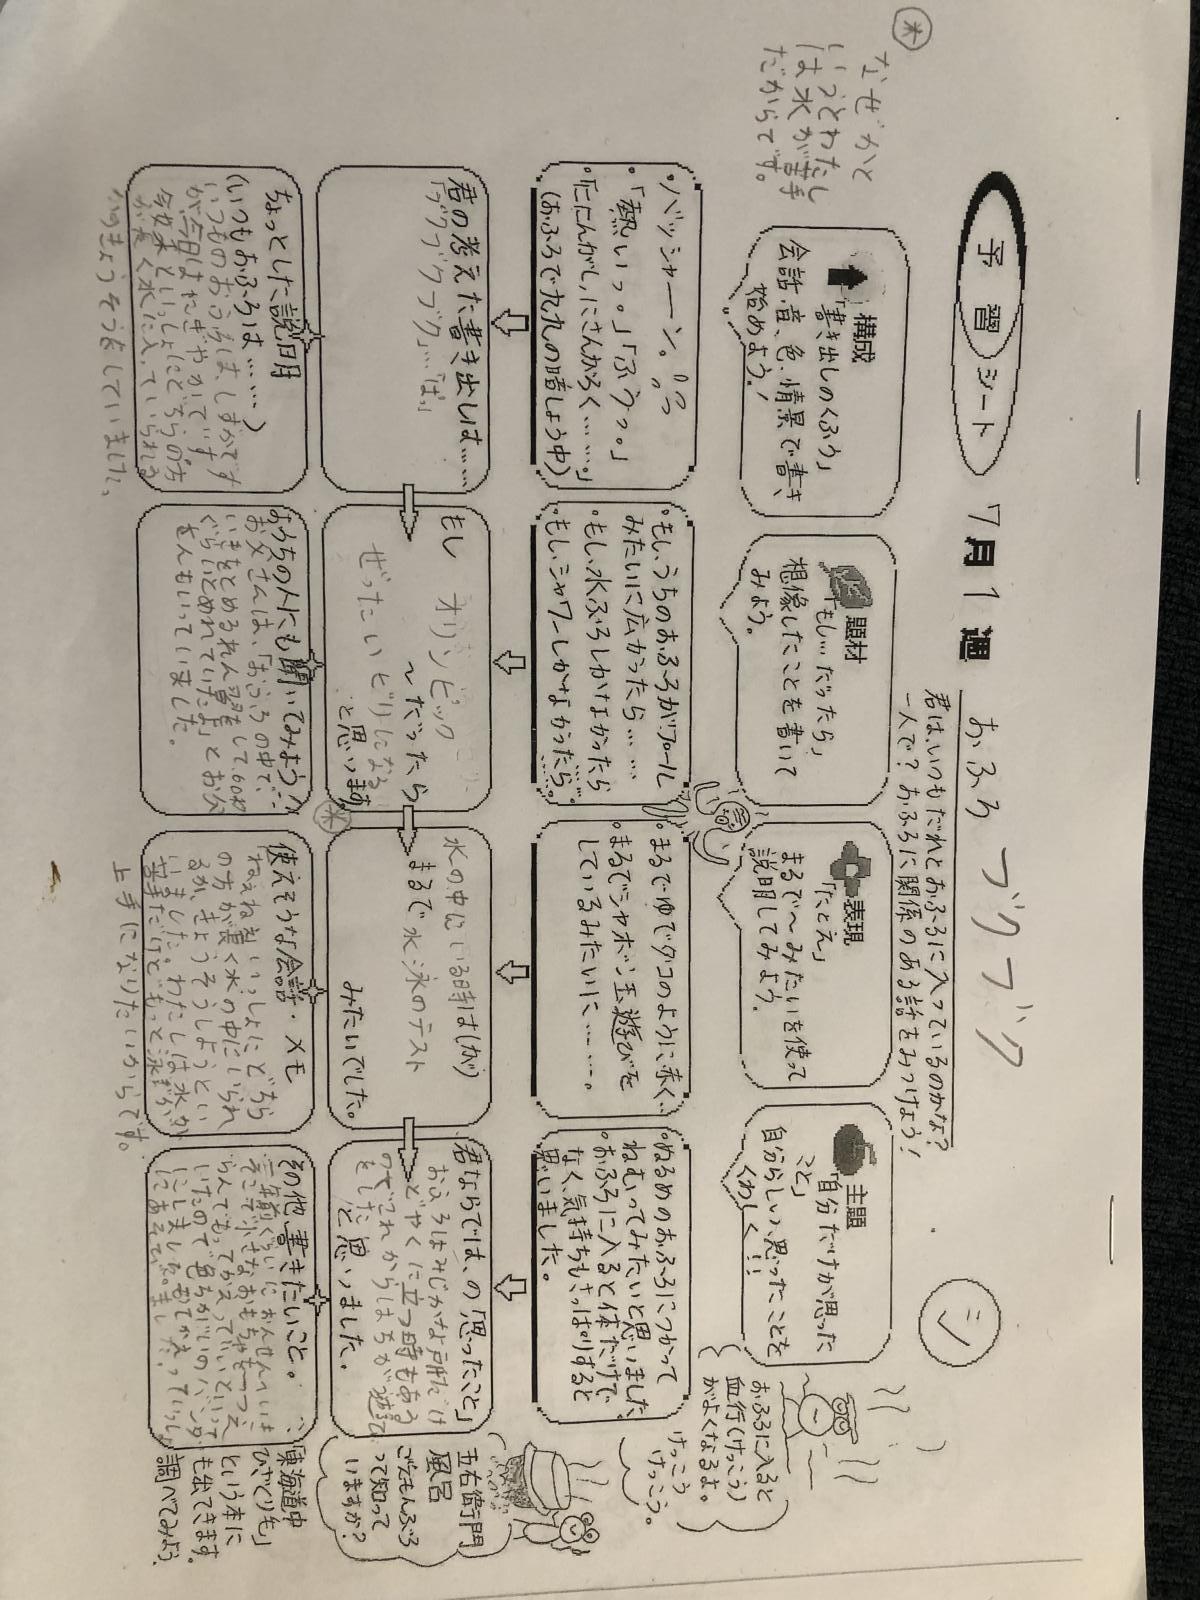 予習シート 7月1週
おふろ ブクブク
君は、いつもだれとおふろに入っているのかな?
一人で? おふろに関係のある話をみつけよう!
シ
構成
「書き出しのくふう」
会話・音、色・情景で書き
始めよう!
題材
「もし…だったら」
想像したことを書いて
みよう。
表現
「たとえ」
まるで〜みたいを使って
説明してみよう。
主題
「自分だけが思った
こと」
自分らしい、思ったことを
くわしく!!
おふろに入ると
血行(けっこう)
がよくなるよ。
けっこう
けっこう。
・バッシャーン。
・「熱いっ。」「ふうっ。」
・「ににんがし、にさんがろく……。」
(おふろで九九の暗しょう中)
・もし、うちのおふろがプール
みたいに広かったら……
・もし、水ぶろしかなかったら
・もし、シャワーしかなかったら。
・まるでゆでダコのように赤く…
・まるでシャボン玉遊びを
しているみたいに………。
・ぬるめのおふろにつかって
ねむってみたいと思いました
・おふろに入ると体だけで
なく、気持ちもさっぱりすると
思いました。
君の考えた書き出しは……
「ブクブクブクブク」…「ぱっ」
もし オリンピック
〜だったら
ぜったいビリになる
と思います
水の中にいる時は(が)
まるで 水泳のテスト
みたいでした。
君ならでは、の「思ったこと」
おふろはみじかな所だけ
どやくに立つ時もある
と思いました。
五右衛門
風呂
ごえもんぶろ
って知って
いますか?
ちょっとした説明
(いつもおふろは……)
いつものおふろは、しずかです
が、今日はにぎやかです。
が長く水に入っていられる
かのきょうそうをしていました。
おうちの人にも聞いてみよう
お父さんは、「おふろの中で、
いきをとめるれん習をして、60秒
ぐらいとめれていたよ」とお父
さんもいっていました。
使えそうな会話・メモ
いっしょにどちら
の方が長く水の中にいられ
るか、きょうそうしようとい
いました。わたしは水が
苦手だけどもっと泳ぎが
上手になりたいからです。
その他書きたいこと。
「東海道中
ひざくり毛」
という本に
も出てきます。
調べてみよう
なぜかと
いうとわたし
は水が苦手
だからです。